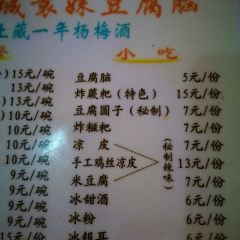 城袁妹豆腐脑
土藏一年杨梅酒
小吃
)15元/碗 豆腐脑 5元/份
)10元/碗 炸蕨粑（特色） 15元/份
10元/碗 豆腐圆子（秘制） 7元/份
10元/碗 炸糍粑 10元/份
10元/碗 凉皮 7元/份
10元/碗 手工鸡丝凉皮 （秘制辣味） 13元/份
9元/碗 米豆腐 7元/份
9元/碗 冰甜酒 6元/份
9元/碗 冰粉 6元/份
冰银耳